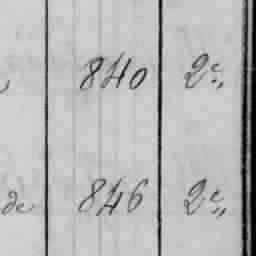 840 2e„
de 846 2e„